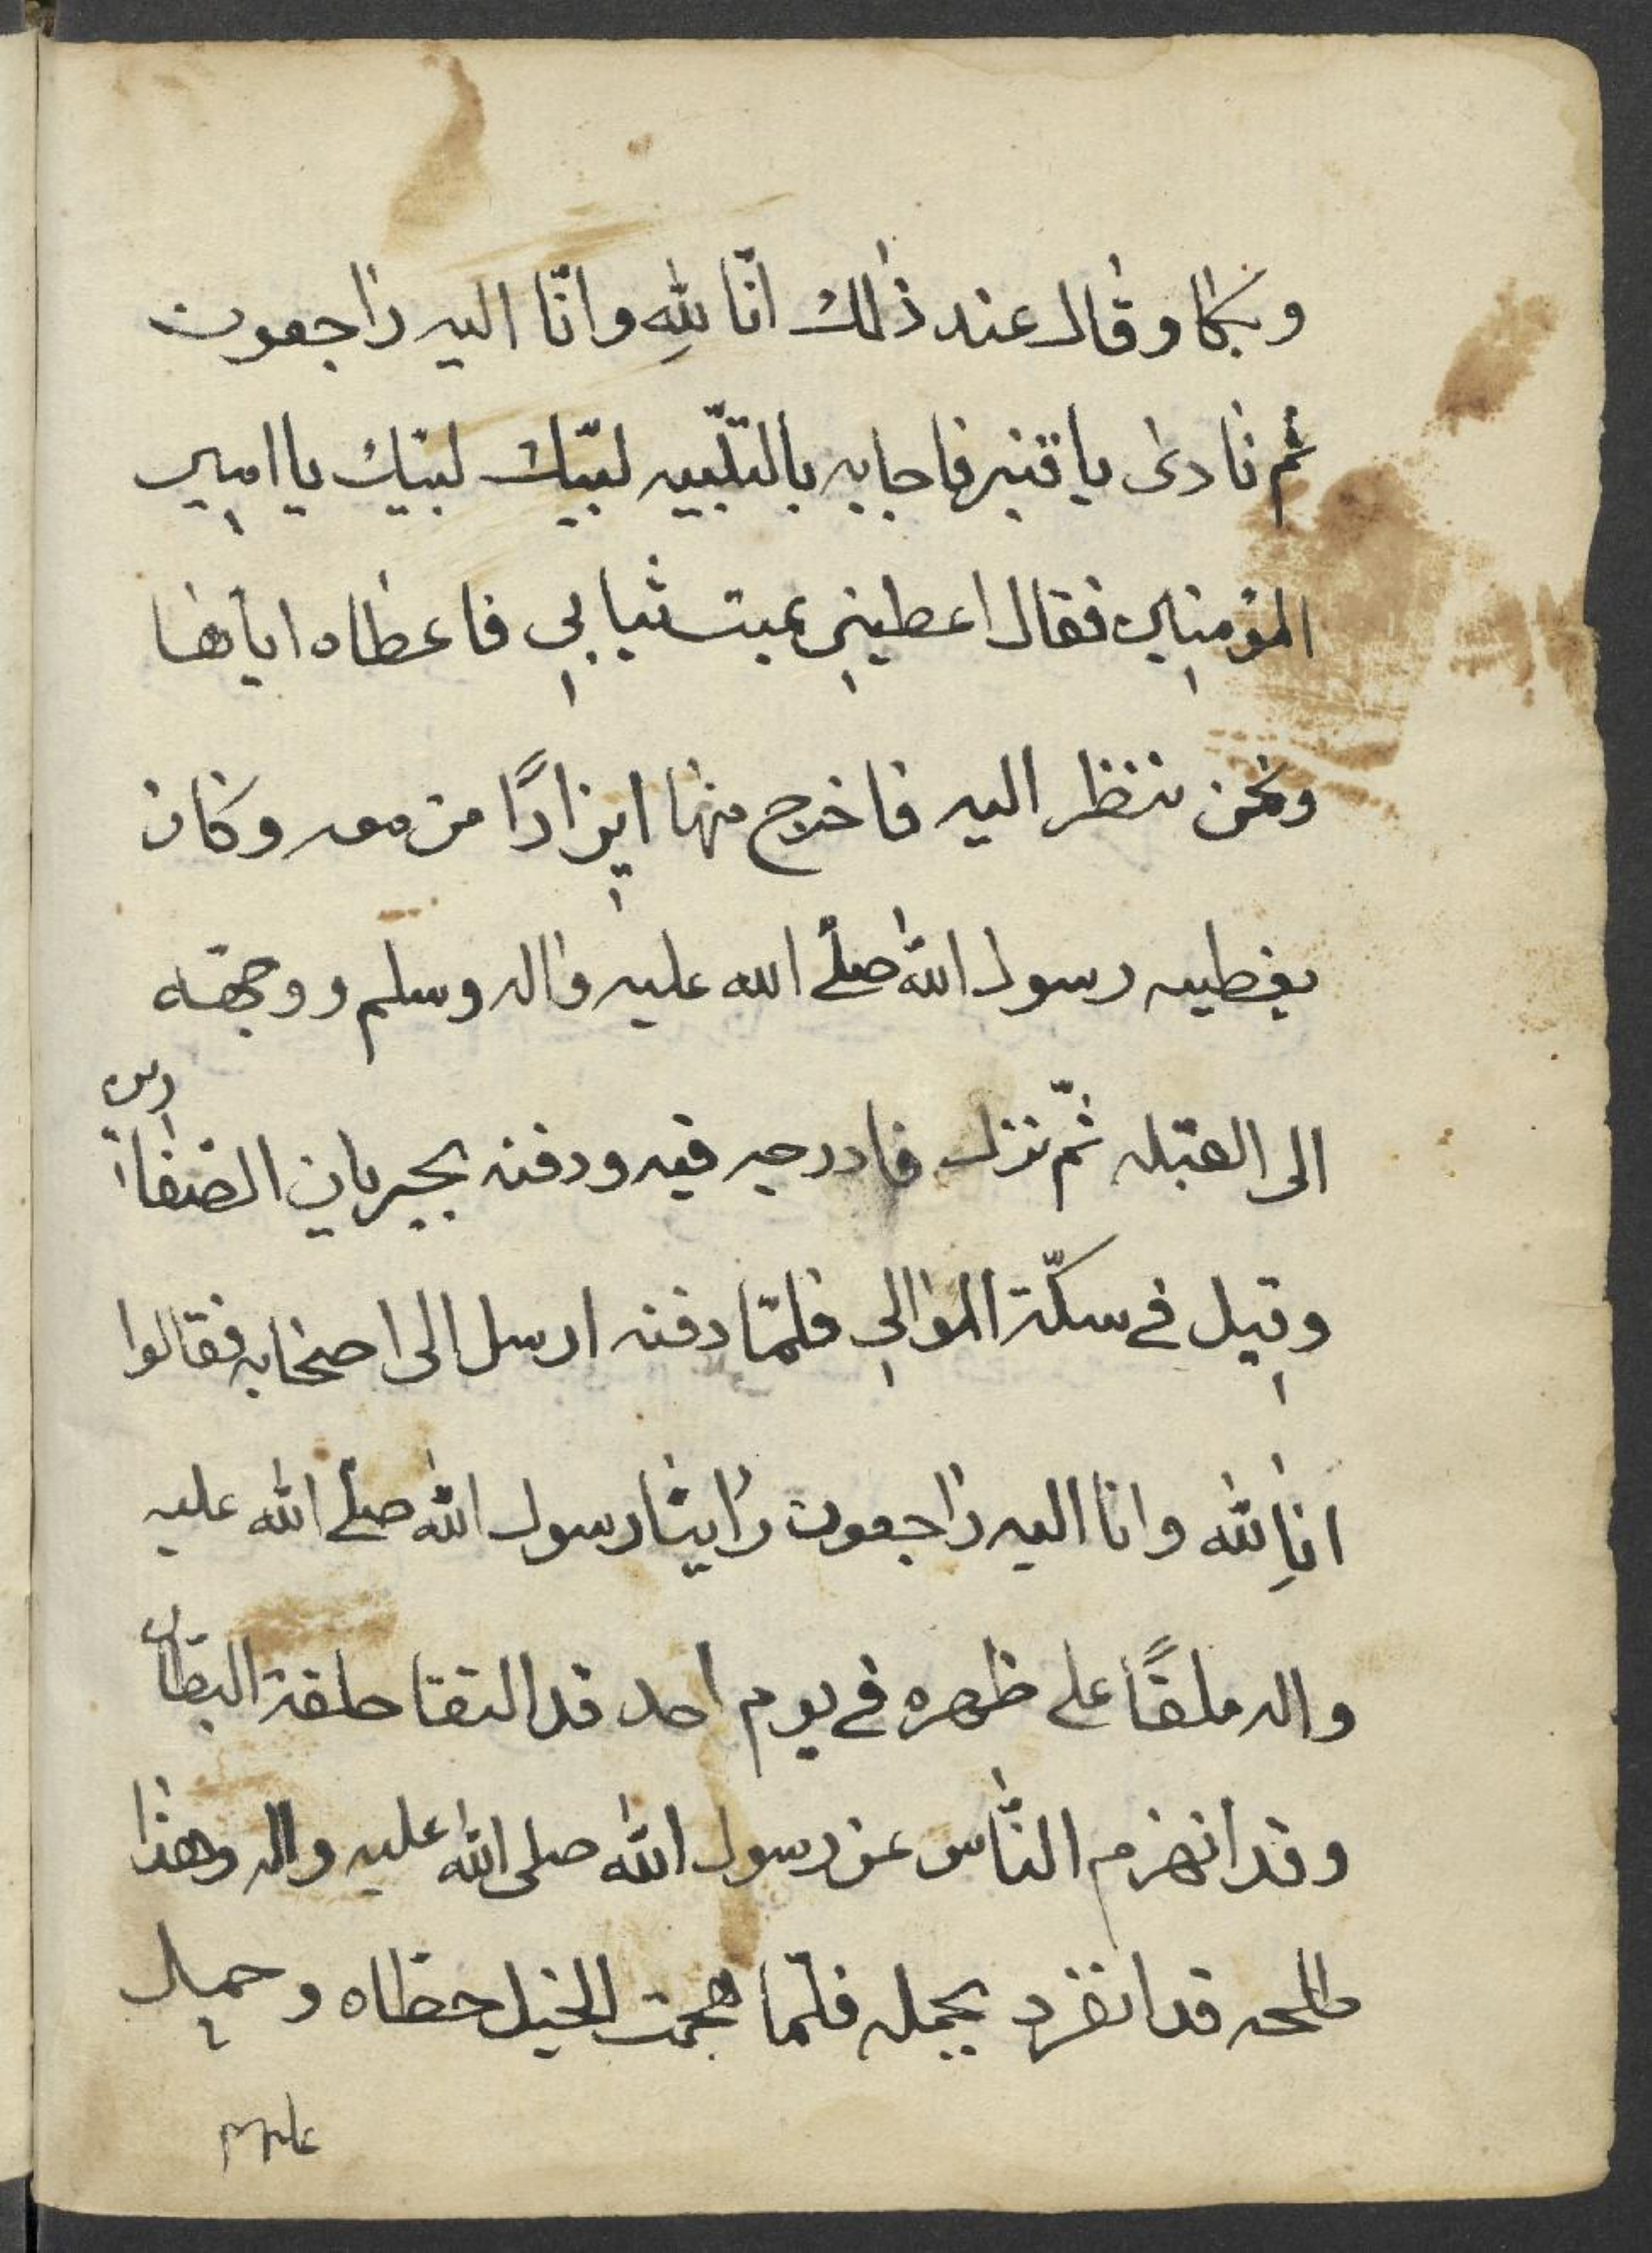 وبكا وقال عند ذلك انّا للهِ وانّا اليه راجعون
ثم نادى يا قنبر فاجابه بالتلّبيه لبّيك لبيّك يا امير
المؤمنين فقال اعطيني عيبت ثيابي فاعطاه اياها
ونحن ننظر اليه فاخرج منها ايزارًا من معه وكان
يغطيه رسول الله صلى الله عليه واله وسلم ووجهّه
الى القبله ثمّ نزل فادرجه فيه ودفنه بجيربان الصفارين
وقيل في سكّة الموالي فلمّا دفنه ارسل الى اصحابه فقالوا
اناِ لله وانا اليه راجعون راينا رسول الله صلى الله عليه
واله ملقًا على ظهره في يوم احد قد التقتا حلقة البطان
وقد انهزم النّاس عن رسول الله صلى الله عليه واله وهذا
طلحه قد انفرد بجمله فلمّا هجمت الخيل حطاه وحميل
عليهم